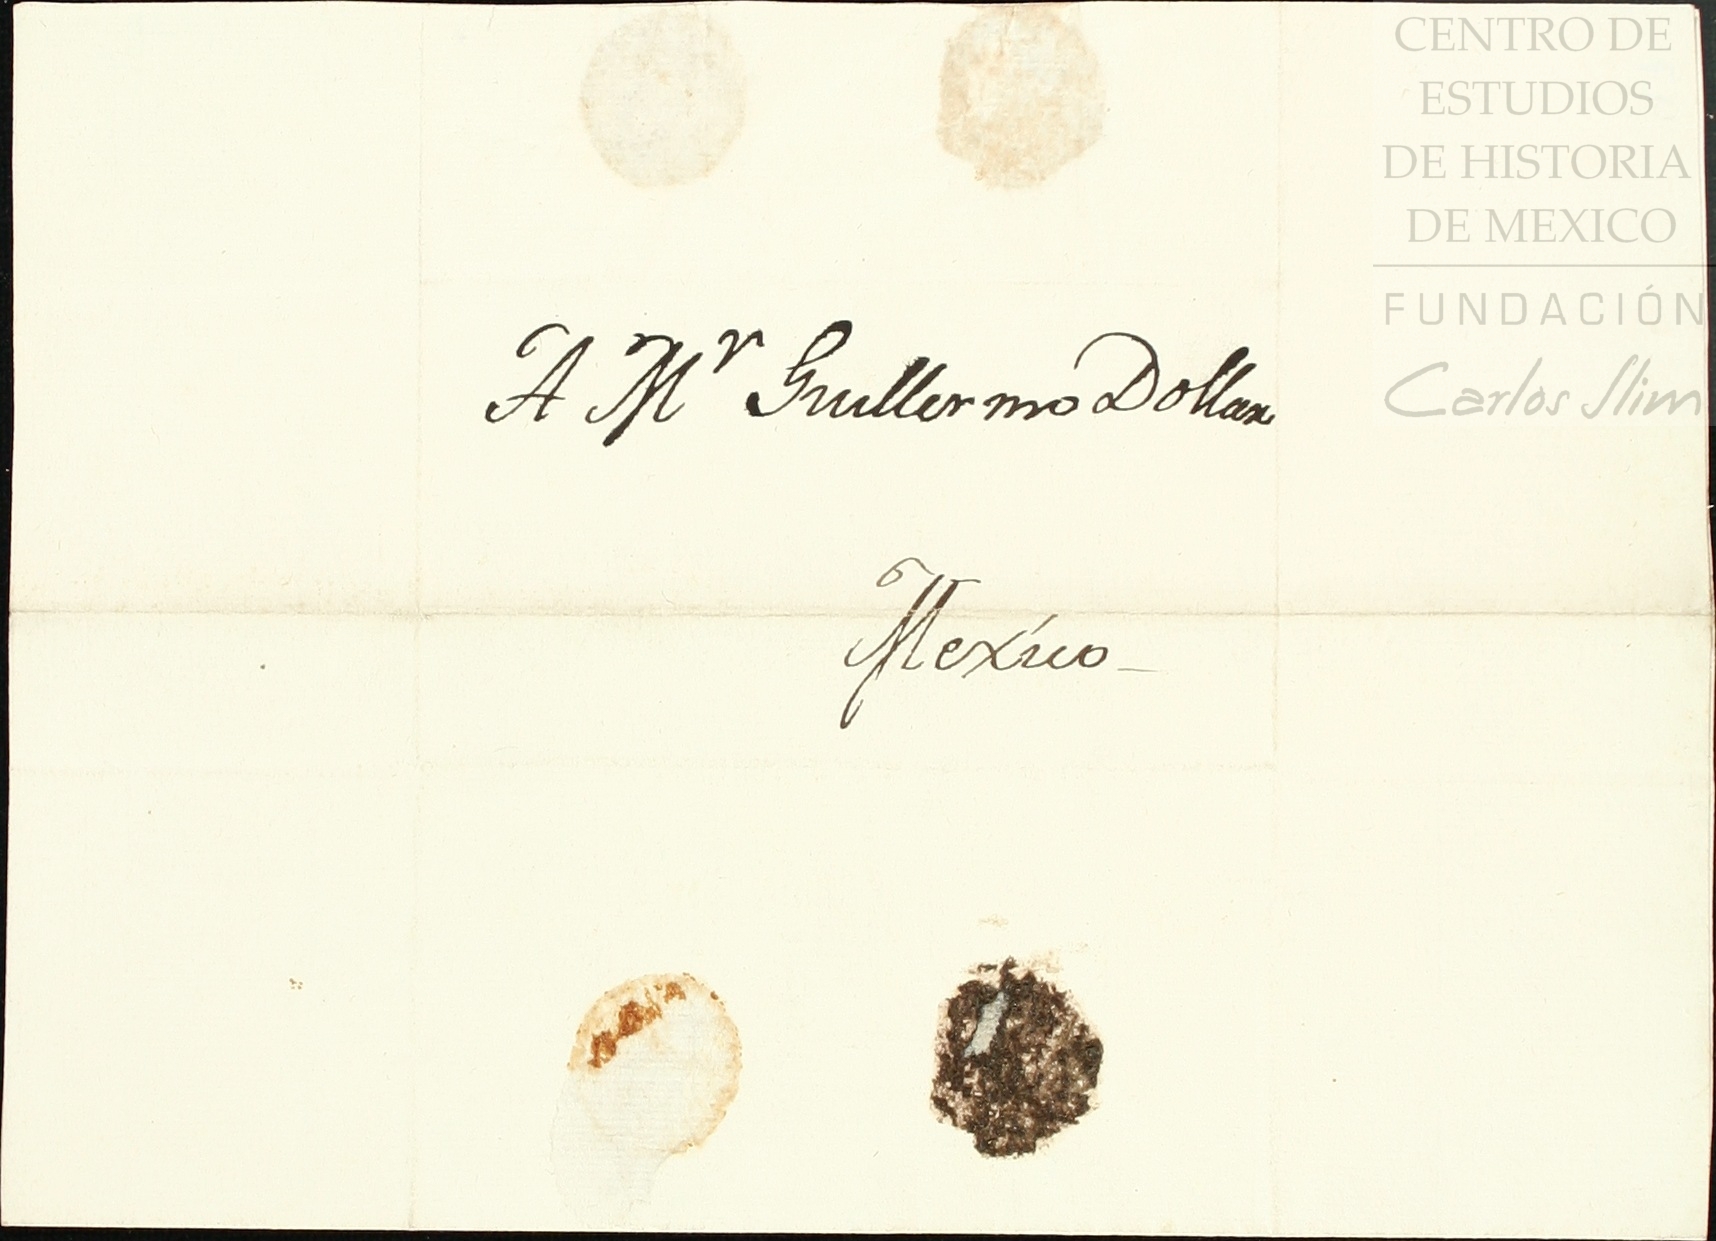 CENTRO DE
ESTUDIOS
DE HISTORIA
DE MEXICO
FUNDACIÓN
Carlos Slim
A Mr Guillermo Dollar
Mexico